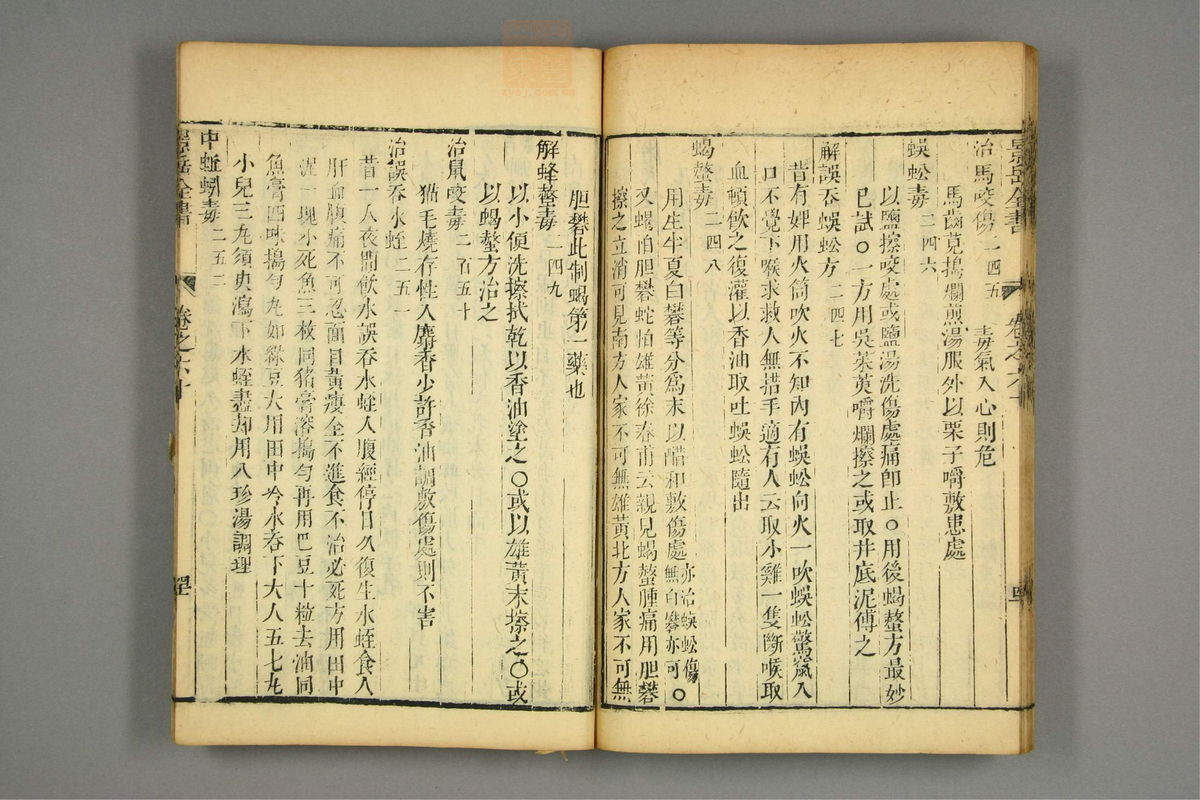 景岳全書 卷之六十
治馬咬傷二四五 毒氣入心則危
馬齒莧搗爛煎湯服外以栗子嚼敷患處
蜈蚣毒二四六
以鹽擦咬處或鹽湯洗傷處痛卽止○用後蝎螫方最妙
已試○一方用吳茱萸嚼爛擦之或取井底泥傅之
解誤吞蜈蚣方二四七
昔有婢用火筒吹火不知內有蜈蚣向火一吹蜈蚣驚竄入
口不覺下喉求救人無措手適有人云取小雞一隻斷喉取
血頓飲之復灌以香油取吐蜈蚣隨出
蝎螫毒二四八
用生半夏白礬等分爲末以醋和敷傷處亦治蜈蚣傷無白礬亦可○
又蝎怕胆礬蛇怕雄黃徐春甫云親見蝎螫腫痛用胆礬
擦之立消可見南方人家不可無雄黃北方人家不可無
胆礬此制蝎第一藥也
解蜂螫毒二四九
以小便洗擦拭乾以香油塗之○或以雄黃末擦之○或
以蝎螫方治之
治鼠咬毒二百五十
猫毛燒存性入麝香少許香油調敷傷處則不害
治誤吞水蛭二五一
昔一人夜間飲水誤吞水蛭入腹經停日久復生水蛭食人
肝血腹痛不可忍面目黃瘦全不進食不治必死方用田中
泥一塊小死魚三枚同猪膏溶搗勻再用巴豆十粒去油同
魚膏四味搗勻丸如綠豆大用田中冷水吞下大人五七丸
小兒三丸須臾瀉下水蛭盡却用八珍湯調理
中蚯蚓毒二五二
景岳全書 卷之六十